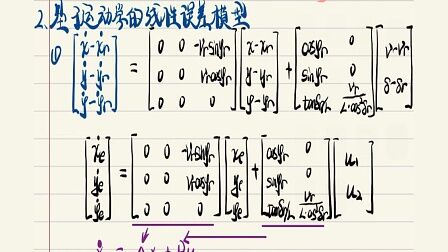 2. 基于运动学的线性误差模型
① [ẋ-ẋr ẏ-ẏr φ̇-φ̇r] = [0 0 -vr sinφr 0 0 vr cosφr] [x-xr y-yr φ-φr] + [cosφr 0 sinφr 0 tanδr/L vr/L·cos²δr] [v-vr δ-δr]
[ẋe ẏe φ̇e] = [0 0 -vr sinφr 0 0 vr cosφr 0 0 0] [xe ye φe] + [cosφr 0 sinφr 0 tanδr/L vr/L·cos²δr] [u1 u2]